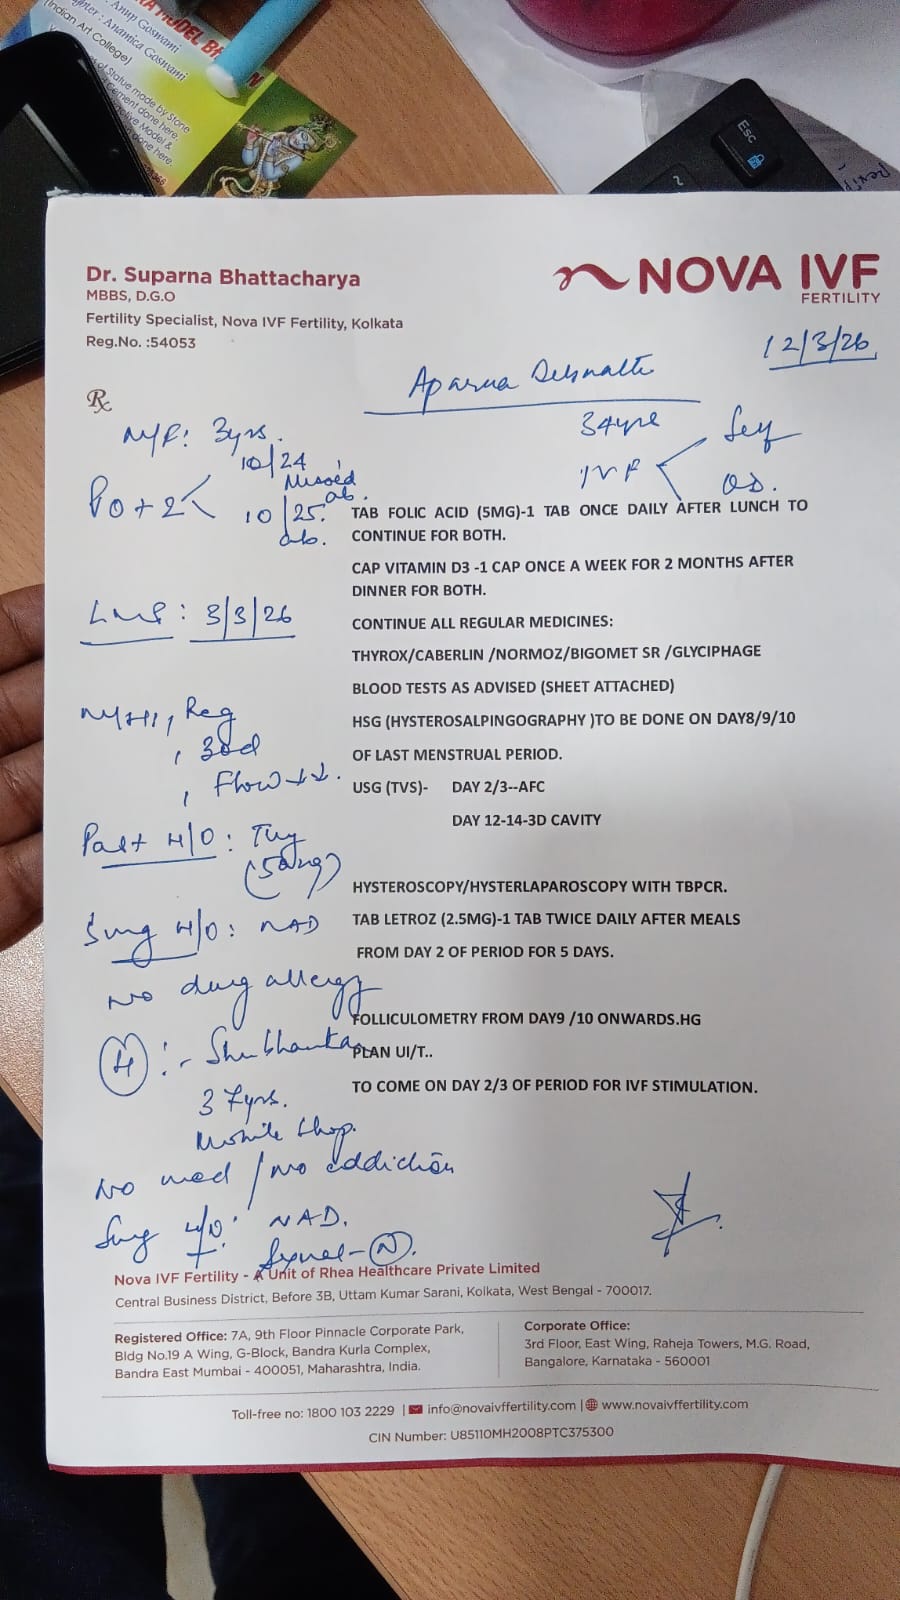 : Anup Goswami
: Anamica Goswami
(Indian Art College)
MODEL
of Statue made by Stone
Cement done here.
Model &
done here.
Esc
2
Dr. Suparna Bhattacharya
MBBS, D.G.O
Fertility Specialist, Nova IVF Fertility, Kolkata
Reg.No. :54053
NOVA IVF
FERTILITY
12/3/26
Rx
Aparna Debnath
34yrs
M/F: 3yrs.
10/24
Missed ab.
P0+2
10/25.
ab.
IVF
Self
OD.
TAB FOLIC ACID (5MG)-1 TAB ONCE DAILY AFTER LUNCH TO
CONTINUE FOR BOTH.
CAP VITAMIN D3 -1 CAP ONCE A WEEK FOR 2 MONTHS AFTER
DINNER FOR BOTH.
LMP: 3/3/26
CONTINUE ALL REGULAR MEDICINES:
THYROX/CABERLIN /NORMOZ/BIGOMET SR /GLYCIPHAGE
BLOOD TESTS AS ADVISED (SHEET ATTACHED)
M/H, Reg
, 30d
, Flow ↓↓.
HSG (HYSTEROSALPINGOGRAPHY )TO BE DONE ON DAY8/9/10
OF LAST MENSTRUAL PERIOD.
USG (TVS)- DAY 2/3--AFC
DAY 12-14-3D CAVITY
Past H/O: Thy
(50mg)
HYSTEROSCOPY/HYSTERLAPAROSCOPY WITH TBPCR.
Surg H/O: NAD
TAB LETROZ (2.5MG)-1 TAB TWICE DAILY AFTER MEALS
FROM DAY 2 OF PERIOD FOR 5 DAYS.
No drug allergy
FOLLICULOMETRY FROM DAY9 /10 ONWARDS.HG
(H):- Shubhankar
PLAN UI/T..
TO COME ON DAY 2/3 OF PERIOD FOR IVF STIMULATION.
37yrs.
Mobile Shop.
No med / No addiction
Surg H/O: NAD.
(N).
Nova IVF Fertility - A Unit of Rhea Healthcare Private Limited
Central Business District, Before 3B, Uttam Kumar Sarani, Kolkata, West Bengal - 700017.
Registered Office: 7A, 9th Floor Pinnacle Corporate Park,
Bldg No.19 A Wing, G-Block, Bandra Kurla Complex,
Bandra East Mumbai - 400051, Maharashtra, India.
Corporate Office:
3rd Floor, East Wing, Raheja Towers, M.G. Road,
Bangalore, Karnataka - 560001
Toll-free no: 1800 103 2229 | info@novaivffertility.com | www.novaivffertility.com
CIN Number: U85110MH2008PTC375300